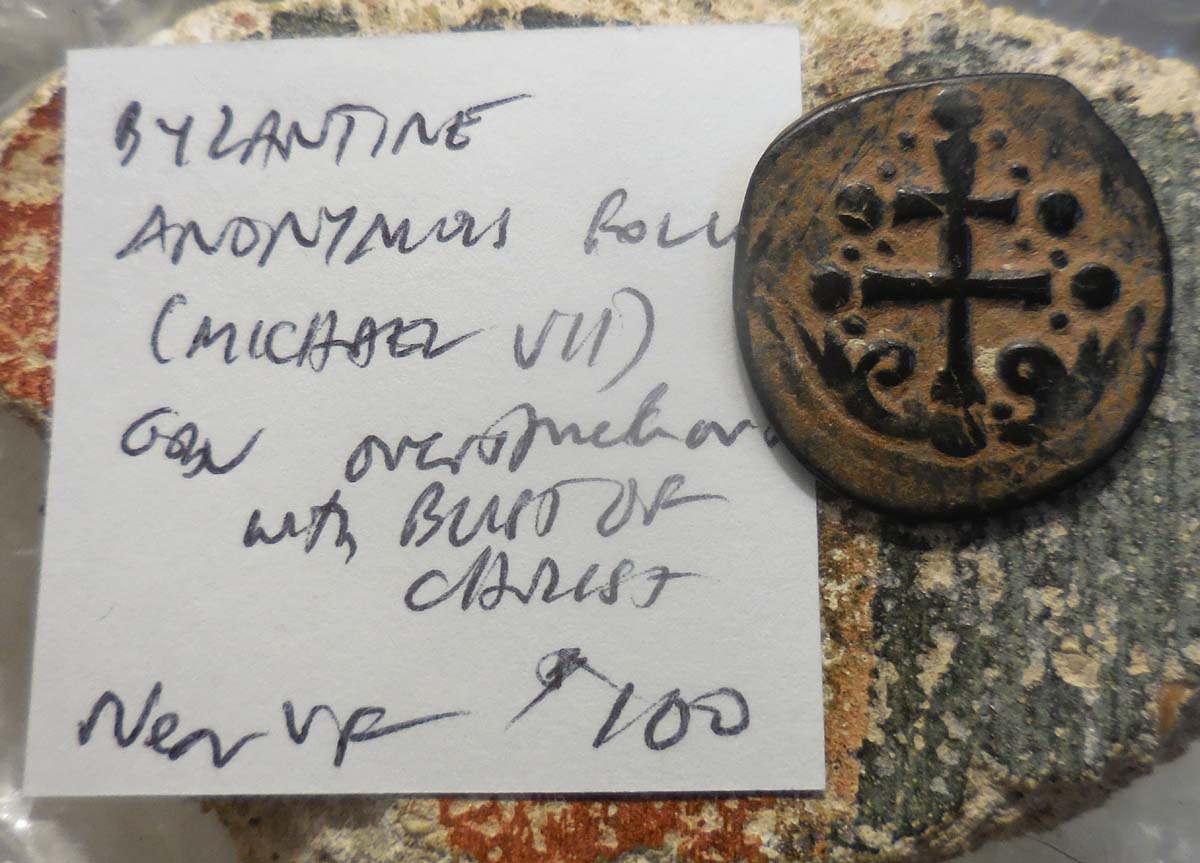 BYZANTINE
ANONYMOUS FOLL
(MICHAEL VII)
with BUST OF
CHRIST
Near VF $100